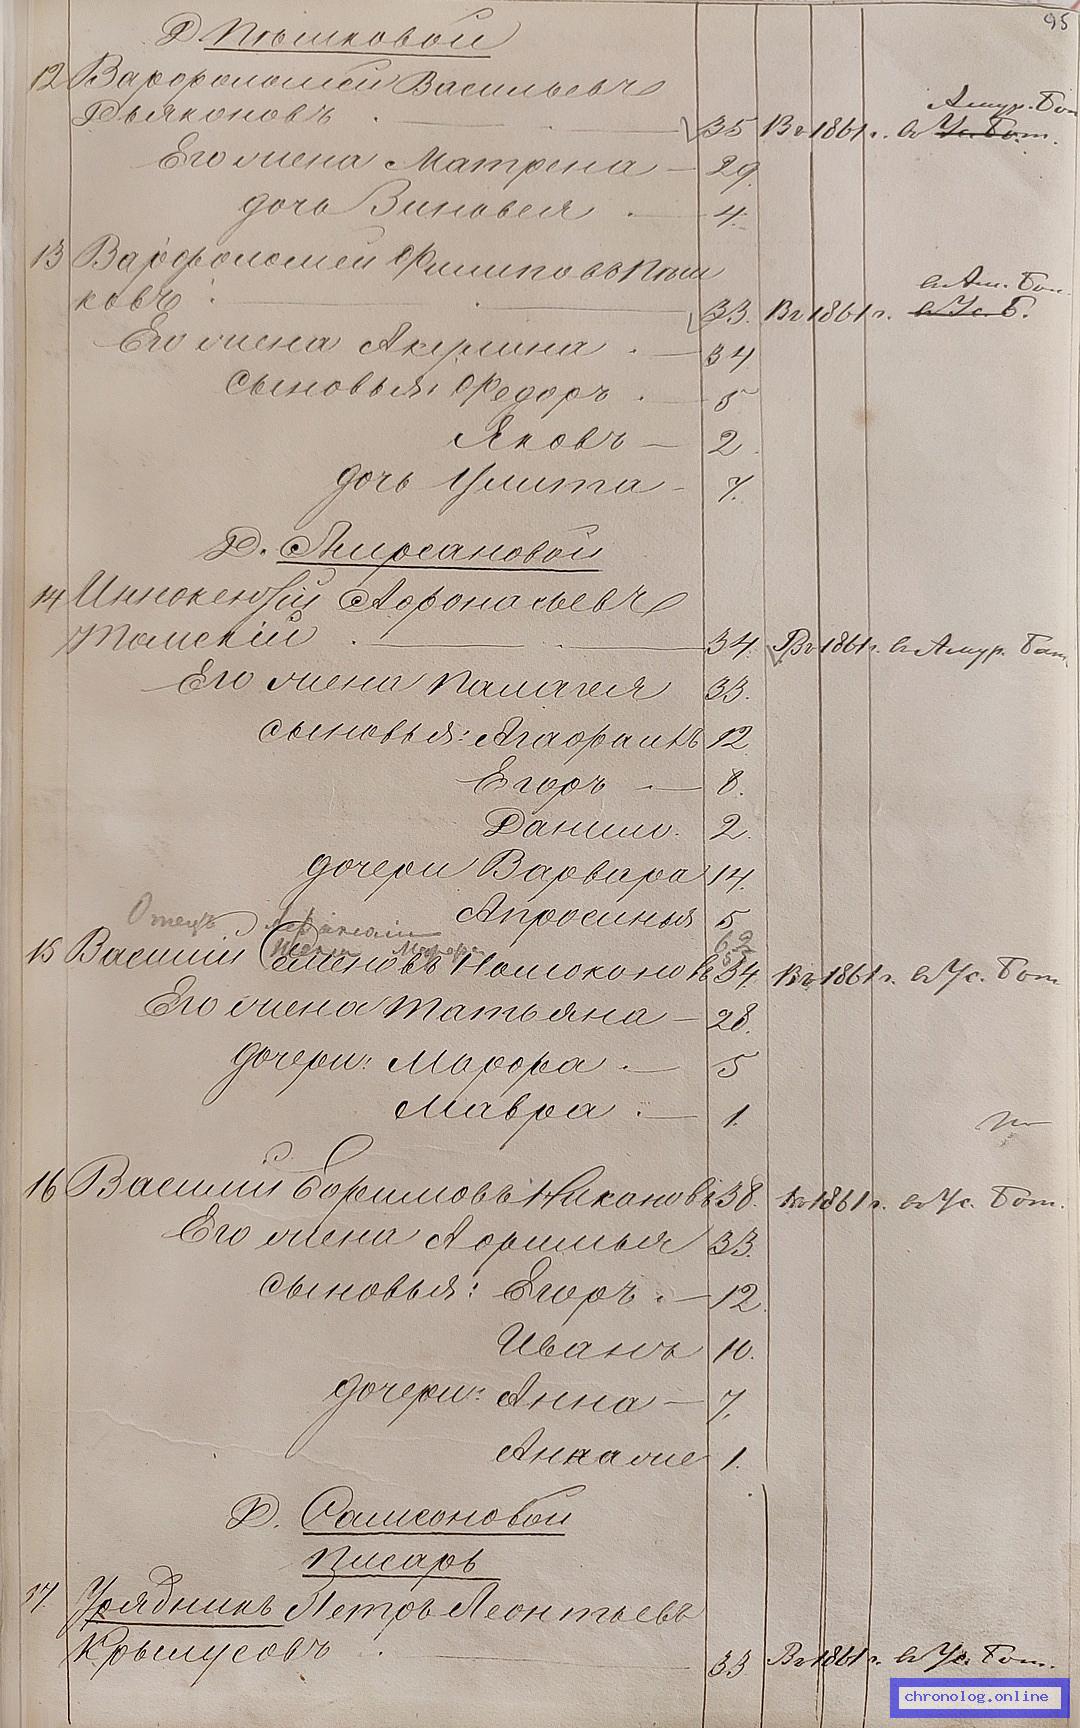 95
Д. Пѣшковой
12 Варфоломей Васильевъ
Дьяконовъ 35 Въ 1861 г. въ Ус. Бат. Амур. Бат
Его жена Матрена 29
дочь Зиновея 4
13 Варфоломей Филиповъ Пѣш
ковъ 33. Въ 1861 г. въ Ус. Б. въ Ам. Бат.
Его жена Акулина 34
сыновья: Федоръ 5
Яковъ 2
дочь Улита 7.
Д. Кирсановой
14 Иннокентій Афонасьевъ
Томскій 34. Въ 1861 г. въ Амур. Бат
Его жена Палагея 33.
сыновья: Агафанъ 12
Егоръ 8.
Данило. 2.
дочери Варвара 14.
Апросинья 5
Отецъ
62
15 Василий Семеновъ Номоконовъ 34. Въ 1861 г. въ Ус. Бат
Его жена Татьяна 28.
дочери: Марфа 5
Мавра 1.
16 Василий Ефимовъ Никановъ 38. Въ 1861 г. въ Ус. Бат.
Его жена Афимья 33.
сыновья: Егоръ 12
Иванъ 10.
дочери: Анна 7.
Анна же 1.
Д. Самсоновой
Писарь
17. Урядникъ Петръ Леонтьевъ
Крылусовъ 33 Въ 1861 г. въ Ус. Бат.
chronolog.online